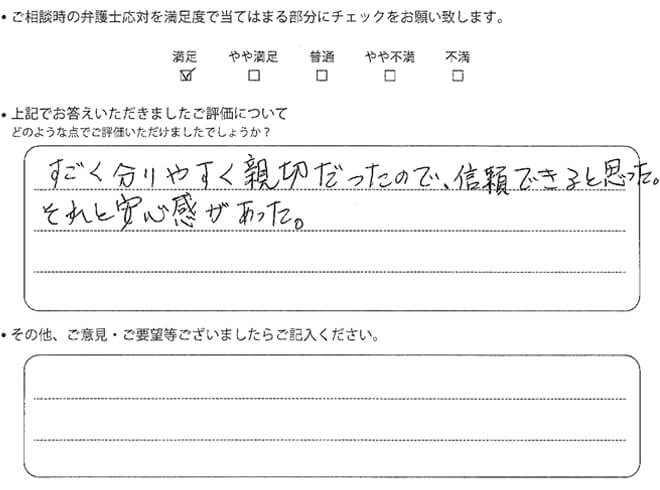 • ご相談時の弁護士応対を満足度で当てはまる部分にチェックをお願い致します。
満足 やや満足 普通 やや不満 不満
☑ ☐ ☐ ☐ ☐
• 上記でお答えいただきましたご評価について
どのような点でご評価いただけましたでしょうか？
すごく分りやすく親切だったので、信頼できると思った。
それと安心感があった。
• その他、ご意見・ご要望等ございましたらご記入ください。